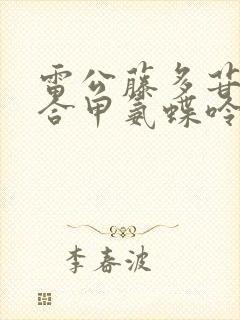 雷公藤多苷
合甲氨蝶呤
李春波